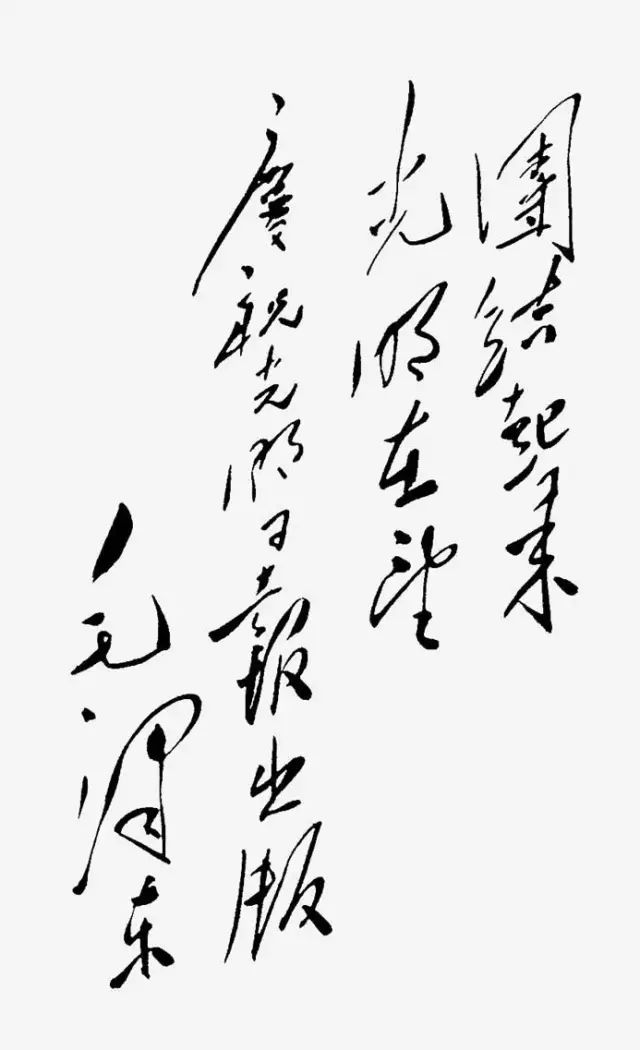 團結起來
光明在望
慶祝光明日報出版
毛澤東